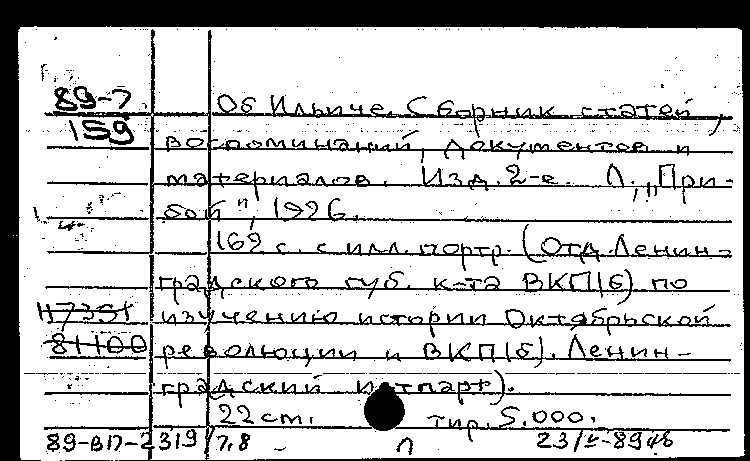 89-7
159
Об Ильиче. Сборник статей,
воспоминаний, документов и
материалов. Изд. 2-е. Л., „При-
бой", 1926.
162 с. с илл. портр. (Отд. Ленин-
градского губ. к-та ВКП(б) по
изучению истории Октябрьской
революции и ВКП(б). Ленин-
градский истпарт).
117351
81100
22 cm. тир. 5.000.
89-ВП-2319/7,8 - П